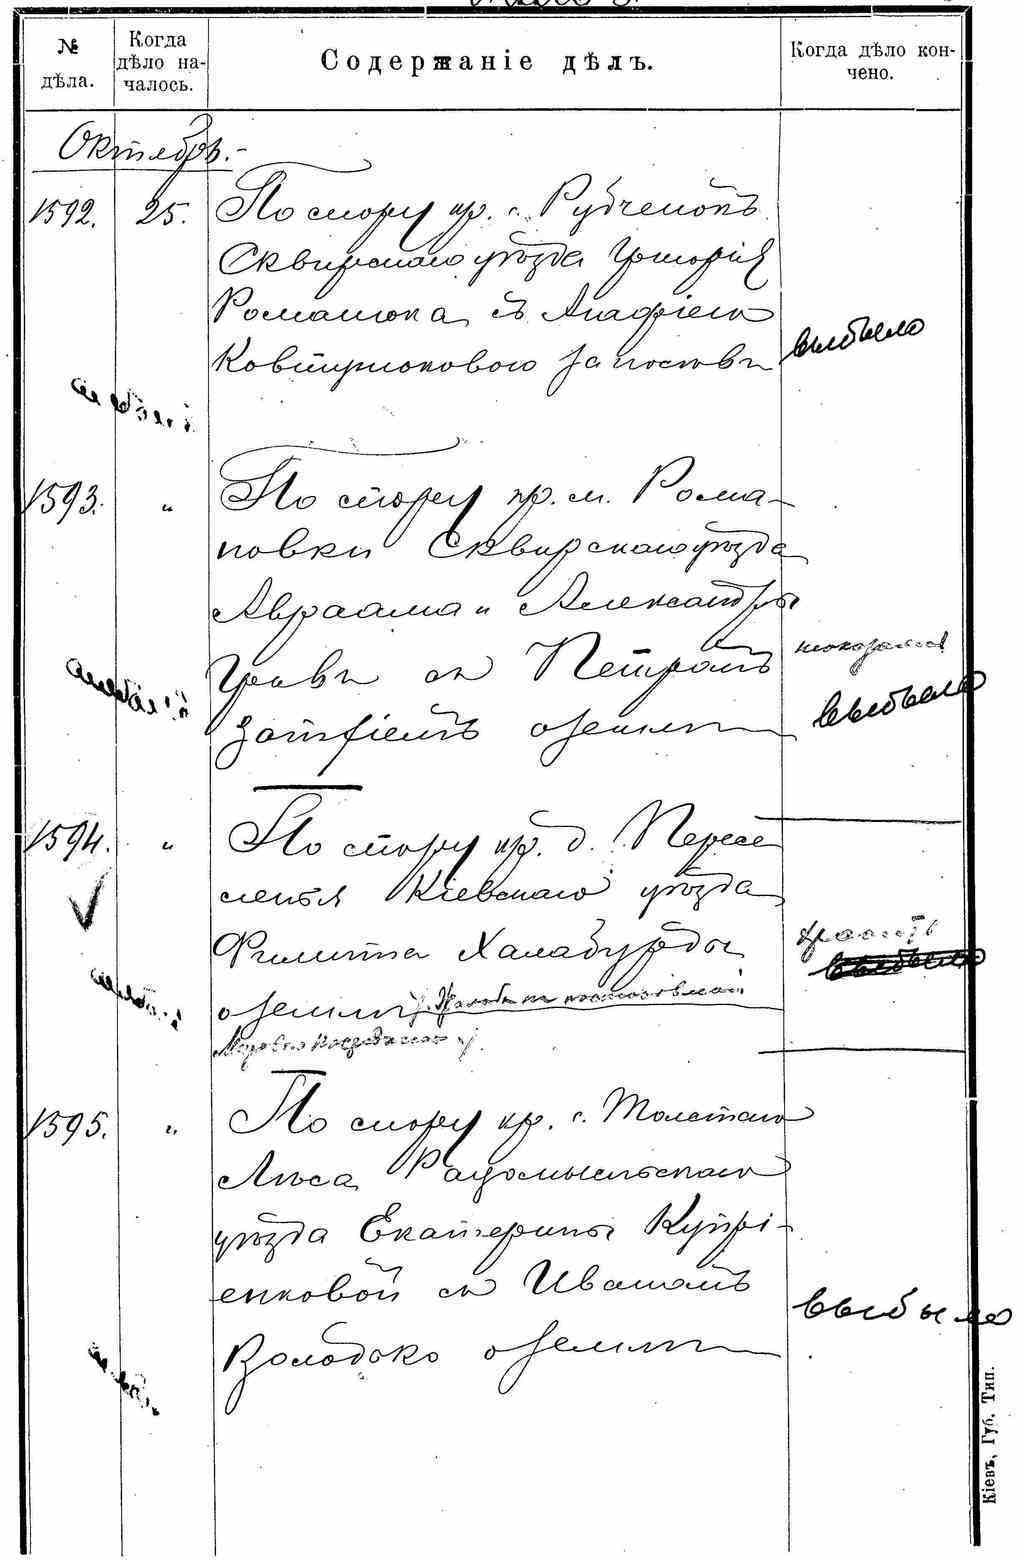 № дѣла.
Когда дѣло началось.
Содержаніе дѣлъ.
Когда дѣло кончено.
Октябрь.
1592. 25. По спору кр. с. Рубченокъ
Сквирскаго уѣзда Григорія
Романюка съ Агафіею
Ковтунюковою за
выбыло
1593. " По спору кр. м. Рома-
новки Сквирскаго уѣзда
Авраама и Александры
съ Петромъ
о земли
выбыло
1594. " По спору кр. д. Пересе
ленья Кіевскаго уѣзда
Филиппа Халабурды
о земли
выбыло
1595. " По спору кр. с. Толстаго
Лѣса Радомысльскаго
уѣзда Екатерины Купрі-
енковой съ Иваномъ
Володько о земли
выбыло
Кіевъ, Губ. Тип.